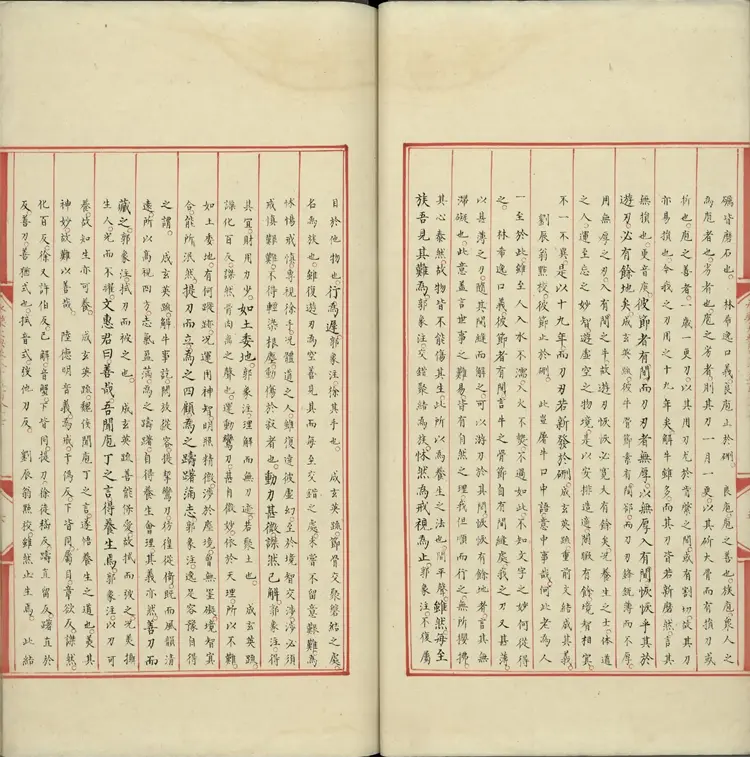 礪皆磨石也。　林希逸口義良庖止於硎。　良庖庖之善也。族庖衆人之
為庖者也。劣者也。庖之劣者則其刀一月一更。以其斫大骨而有損刀或
折也。庖之善者。一歲一更刀。以其用刀尤於常樂之閒。或有割切故其刀
亦易損也。今我之刀用之十九年矣解牛雖多而其刀皆若新磨然。言其
無損也。更音庚。彼節者有間而刀刃者無厚。以無厚入有間恢恢乎其於
遊刃必有餘地矣。成玄英疏彼牛骨節素有閒郤而刀刃鋒銳薄而不厚。
用無厚之刃入有閒之牛故遊刃恢恢必寬大有餘矣況養生之士。體道
之人運至忘之妙智遊虛空之物境。是以安排造適閒暇有餘境智相冥。
不一不異。是以十九年而刀刃若新發於硎。成玄英疏重前文結成其義。
劉辰翁點校。彼節止於硎。　此豈屠牛口中語意中事哉。何此老為人
一至於此。雖至人入水不濡。入火不爇不過如此。不知文字之妙何從得
之。　林希逸口義彼節者有閒言牛之骨節自有閒縫處。我之刀又甚薄。
以甚薄之刀。隨其閒縫而解之。可以游刃於其閒恢恢有餘地者言其無
滯礙也。此意蓋言世事之難易皆有自然之理我但順而行之。無所攖拂。
其心泰然。故物皆不能傷其生。此所以為養生之法也。閒平聲。雖然每至
族吾見其難為。郭象注交錯聚結為族怵然為戒視為止。郭象注。不復屬
目於他物也。行為遲。郭象注徐其手也。　成玄英疏。節骨交聚盤結之處。
名為族也。雖復遊刃為空善見其而每至交錯之處未嘗不留意艱難為
怵惕戒慎專視徐手。況體道之人。雖復達彼虛幻至於境智交涉。必須
戒慎艱難。不得輕染根塵動傷於寂者也。動刀甚微謋然已解。郭象注得
其宜。則用力少。如土委地。郭象注理解而無刀迹若聚土也。　成玄英疏。
謋化百反。謋然骨肉離之聲也。運動鸞刀。甚自微妙。依於天理。所以不難。
如土委地。有何蹤跡。況運用神智明照精微涉於塵境。曾無罣礙境智冥
合。能所泯然提刀而立為之四顧為之躊躇滿志郭象注。逸足容豫自得
之謂。　成玄英疏。解牛事訖。閑放從容提挈鸞刀彷徨徙倚既而風韻清
遠。所以高視四方。志氣盈滿。為之躊躇自得養生會理其義亦然。善刀而
藏之。郭象注拭刀而弢之也。　成玄英疏善能保愛故拭而弢之。況美攝
生人。光而不耀。文惠君曰善哉。吾聞庖丁之言得養生焉。郭象注。以刀可
養。故知生亦可養。　成玄英疏。魏侯聞庖丁之言。遂悟養生之道也。美其
神妙。故歎以善哉。　陸德明音義為戒。于偽反。下皆同。屬目。音欲反。謋然。
化百反。徐又許伯反。已解。音蟹。下皆同。提刀。徐徒稽反。躊直留反。躇直於
反。善刀。善猶拭也。拭音式。弢他刀反。　劉辰翁點校。雖然止生焉。　此結